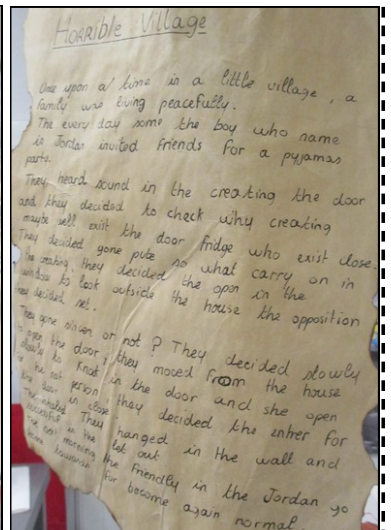 Horrible Village
Once upon a time in a little village, a
family was living peacefully.
The every day some the boy who name
is Jordan invited friends for a pyjamas
party.
They heard sound in the creating the door
and they decided to check why creating
maybe sell exit the door fridge who exist close.
They decided gone pute so what carry on in
The meating, they decided the open in the
window to look outside the house the opposition
They gone or not? They decided slowly
to open the door, they moved from the house
slowly to knot in the door and she open
for he not person they decided the enther for
the door in close hanged in the wall and
They let out
successful in the the friendly in the Jordan go
The next morning
for become again normal.